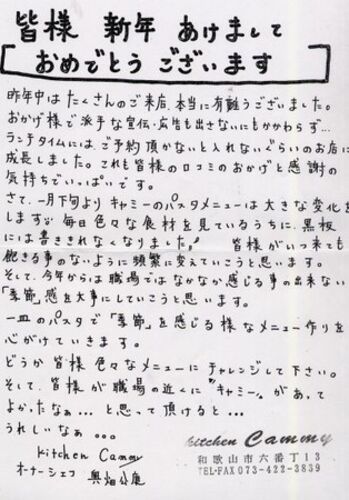 皆様 新年 あけまして
おめでとう ございます
昨年中は たくさんのご来店、本当に有難うございました。
おかげ様で 派手な宣伝・広告も出さないにもかかわらず…
ランチタイムには、ご予約頂かないと入れないぐらいのお店に
成長しました。これも皆様の口コミのおかげと感謝の
気持ちでいっぱいです。
さて、一月下旬より キャミーのパスタメニューは 大きな変化を
します 毎日色々な食材を見ているうちに、黒板
には書ききれなくなりました! 皆様がいつ来ても
飽きる事のないように 頻繁に変えていこうと思います。
そして、今年からは 職場ではなかなか感じる事の出来ない
「季節」感を大事にしていこうと思います。
一皿のパスタで「季節」を感じる様なメニュー作りを
心がけていきます。
どうか 皆様 色々なメニューに チャレンジして下さい。
そして、皆様が職場の近くに"キャミー"があって
よかったなぁ… と思って頂けると…
うれしいなぁ 。。。
kitchen Cammy
オーナーシェフ 奥畑
kitchen Cammy
和歌山市六番丁13
TEL・FAX 073-422-3839